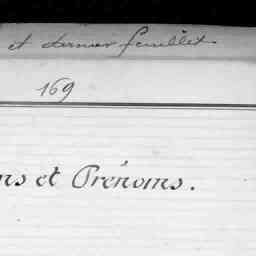 et dernier feuillet
169
ns et Prénoms.